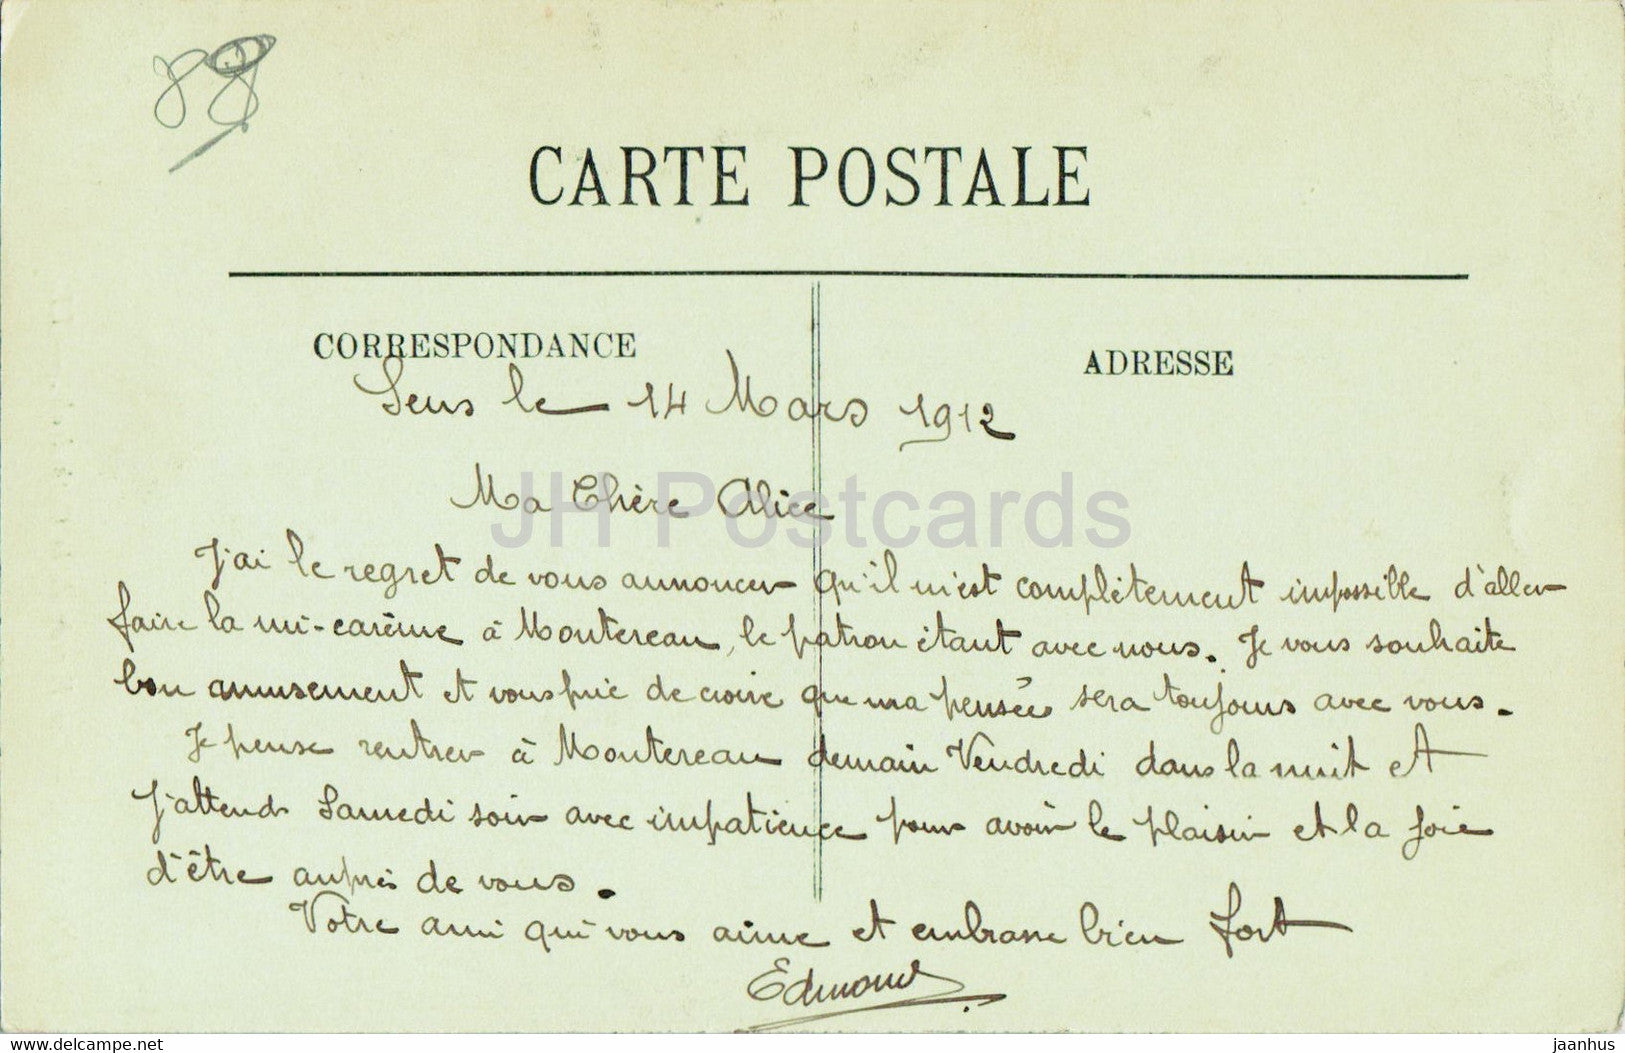 89
CARTE POSTALE
CORRESPONDANCE
ADRESSE
Sens le 14 Mars 1912
Ma Chère Alice
J'ai le regret de vous annoncer qu'il m'est complètement impossible d'aller
faire la mi-carême à Montereau, le patron étant avec nous. Je vous souhaite
bon amusement et vous prie de croire que ma pensée sera toujours avec vous.
Je pense rentrer à Montereau demain Vendredi dans la nuit et
J'attends Samedi soir avec impatience pour avoir le plaisir et la joie
d'être auprès de vous.
Votre ami qui vous aime et embrasse bien fort
Edmond
JH Postcards
https://www.delcampe.net
jaanhus